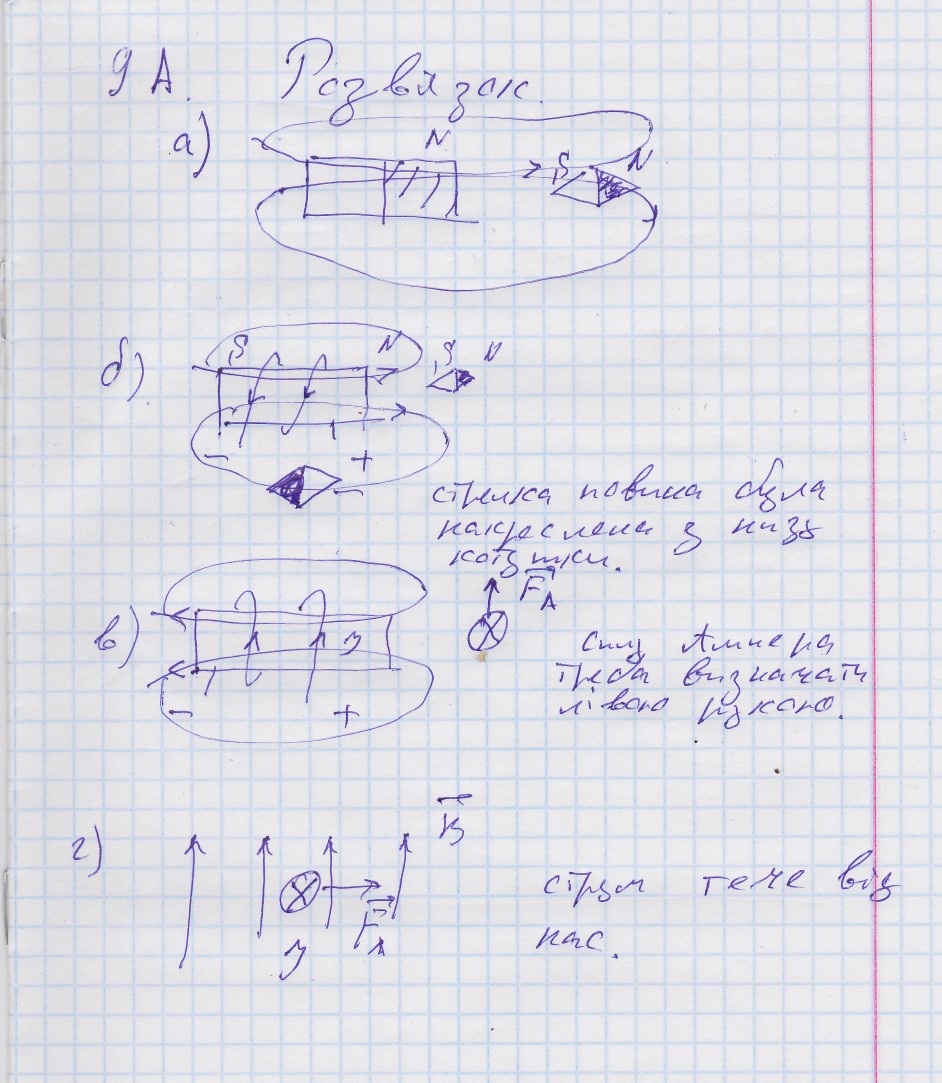 9 А. Розв'язок.
а)
N
S N
б)
S N S N
- +
-
стрелка повина була
накреслена з низу
котушки.
в)
F_A
I
- +
силу Ампера
треба визначати
лівою рукою.
г)
B
I F_A
струм тече від
нас.